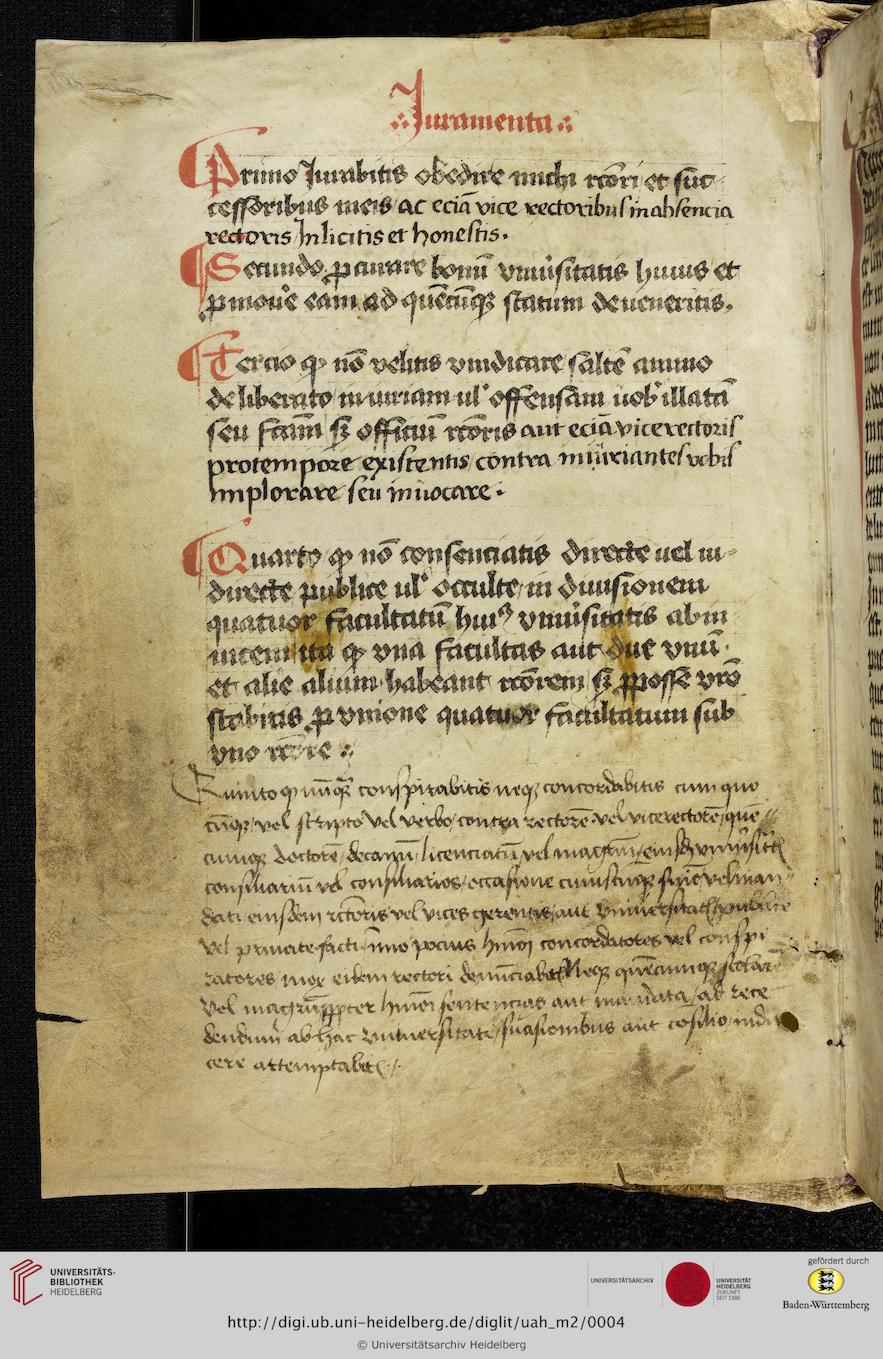 Juramenta
Primo Jurabitis obedire michi rc̄ori et suc
cessoribus meis ac eciā vice rectoribus in absencia
rectoris In licitis et honestis.
Secundo ꝓcurare bonū vniu͛sitatis huius et
ꝓmoue͛ eam ad quēcūqꝫ statum deueneritis.
Tercio ꝙ nō velitis vindicare saltē animo
deliberato iniuriam ul͛ offensam uob͛ illatā
seu fc̄am sꝫ officiū rc̄oris aut eciā vicerectoris
pro tempore existentis contra iniuriantes vobis
Implorare seu inuocare.
Quarto ꝙ nō consenciatis directe uel in-
directe publice ul͛ occulte in diuisionem
quatuor facultatū huiꝰ vniu͛sitatis ab in
uicem ita ꝙ vna facultas aut due vnū
et alie alium habeant rc̄orem sꝫ ꝓ posse vr̄o
stabitis ꝓ vnione quatuor facultatum sub
vno rc̄ore
Quinto ꝙ nūqꝫ conspirabitis neqꝫ concordabitis cum quo
cūqꝫ vel scripto vel verbo contra rectorē vel vicerectorē quē
cumqꝫ doctorē decanū licenciatū vel magr̄m
consiliariū vel consiliarios occasione cuiuscūqꝫ vel man
dati eiusdem rectoris vel vices gerentis aut vniuersitatis publice
vel priuate facti ymo pocius hmōi concordatores vel conspi
ratores mox eidem rectori denunciabitis Neqꝫ quēcumqꝫ scolarē
vel magr̄m ꝓpter hmōi sentencias aut mandata ad rece
dendum ab hac vniuersitate suasionibus aut cōsilio indu
cere attemptabitis
UNIVERSITÄTS-
BIBLIOTHEK
HEIDELBERG
UNIVERSITÄTSARCHIV
UNIVERSITÄT
HEIDELBERG
ZUKUNFT
SEIT 1386
gefördert durch
Baden-Württemberg
http://digi.ub.uni-heidelberg.de/diglit/uah_m2/0004
© Universitätsarchiv Heidelberg